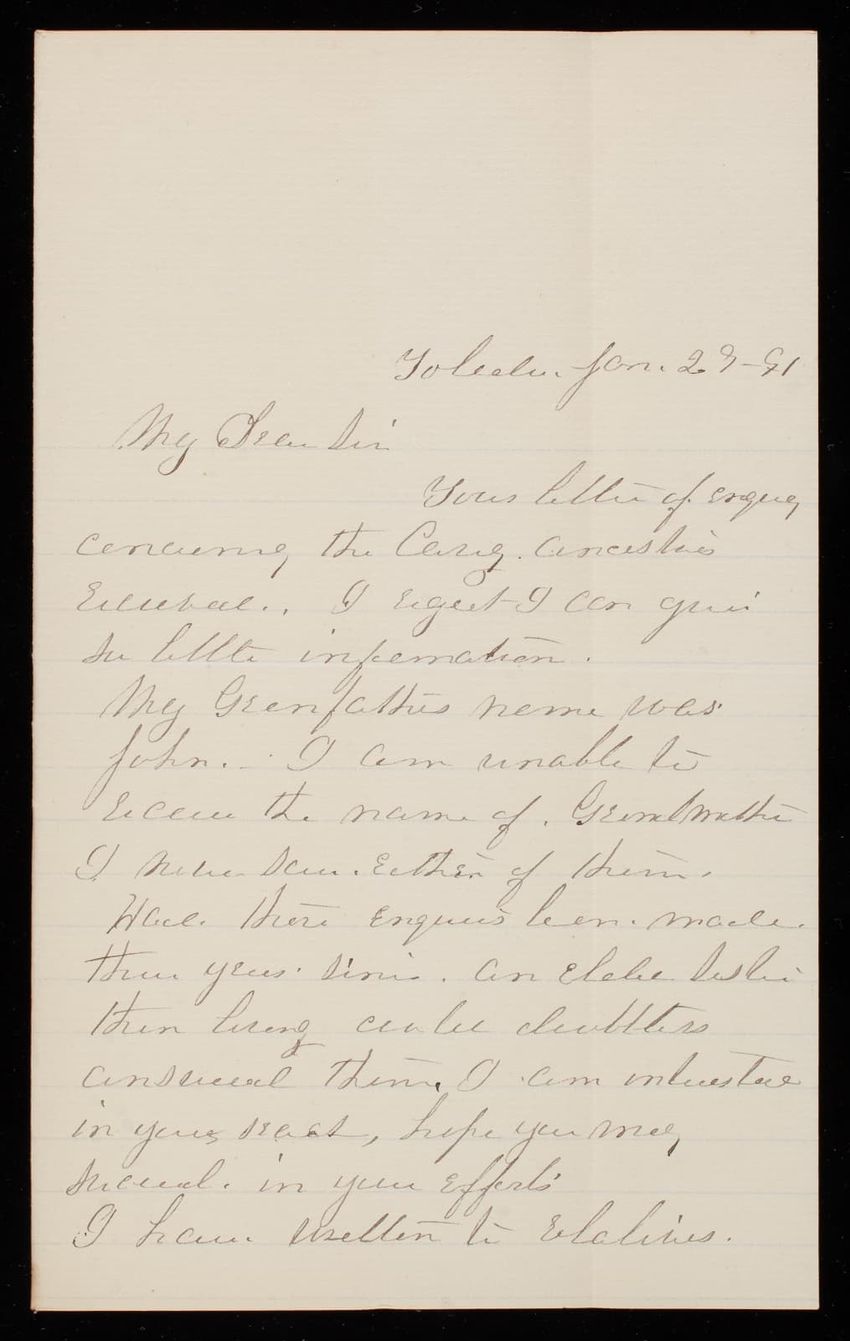 Toledo. Jan. 29-91
My Dear Sir
Your letter of enquiry
concerning the Casey ancestries
received. I regret I can give
so little information.
My Granfathers name was
John. I am unable to
recall the name of Grandmother
I never saw either of them.
Had these enquiries been made
three years since. an elder sister
then living could doubtless
answered them. I am interested
in your search, hope you may
succeed in your efforts
I have written to relatives.